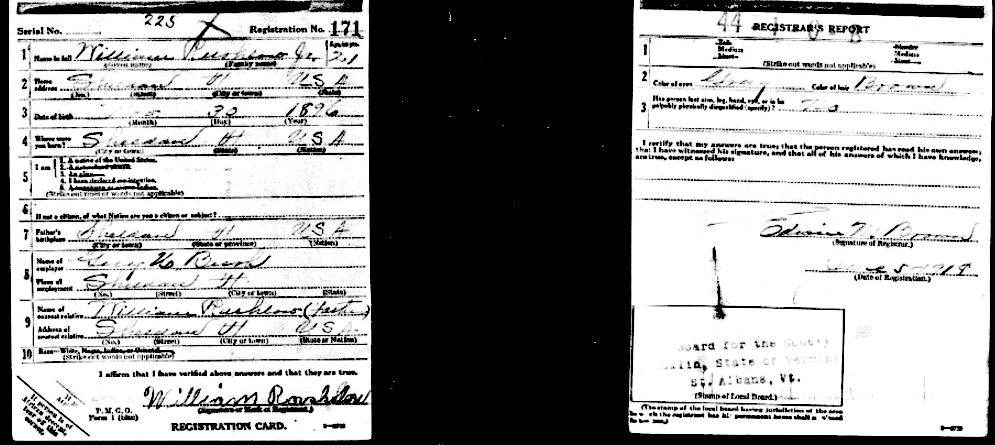 225
Serial No. Registration No. 171
1 Name in full William Rushlow Jr. Age in yrs. 21
(Given name) (Family name)
2 Home address Sheldon Vt USA
(No.) (Street) (City or town) (State)
3 Date of birth 30 1896
(Month) (Day) (Year)
4 Where were you born? Sheldon Vt USA
(City or town) (State) (Nation)
5 I am
1. A native of the United States.
2. A naturalized citizen.
3. An alien.
4. I have declared my intention.
5. A noncitizen or citizen Indian.
(Strike out lines or words not applicable)
6 If not a citizen, of what Nation are you a citizen or subject?
7 Father's birthplace Sheldon Vt USA
(City or town) (State or province) (Nation)
8 Name of employer
Place of employment Sheldon Vt
(No.) (Street) (City or town) (State)
9 Name of nearest relative William Rushlow (father)
Address of nearest relative Sheldon Vt USA
(No.) (Street) (City or town) (State or Nation)
10 Race—White, Negro, Indian, or Oriental
(Strike out words not applicable)
I affirm that I have verified above answers and that they are true.
William Rushlow
(Signature or Mark of Registrant.)
P.M.G.O.
Form 1 (blue)
REGISTRATION CARD.
If person is of African descent, tear off this corner.
44
REGISTRAR'S REPORT
1 Tall Slender
Medium Medium
Short Stout
(Strike out words not applicable)
2 Color of eyes Gray Color of hair Brown
3 Has person lost arm, leg, hand, eye, or is he palpably physically disqualified (specify)? No
I certify that my answers are true; that the person registered has read his own answers; that I have witnessed his signature, and that all of his answers of which I have knowledge are true, except as follows:
Edwin Brown
(Signature of Registrar.)
June 5 1918
(Date of Registration.)
Board for the County
State of Vermont
St. Albans, Vt.
(Stamp of Local Board.)
(The stamp of the local board having jurisdiction of the area in which the registrant has his permanent home shall be used in this box.)